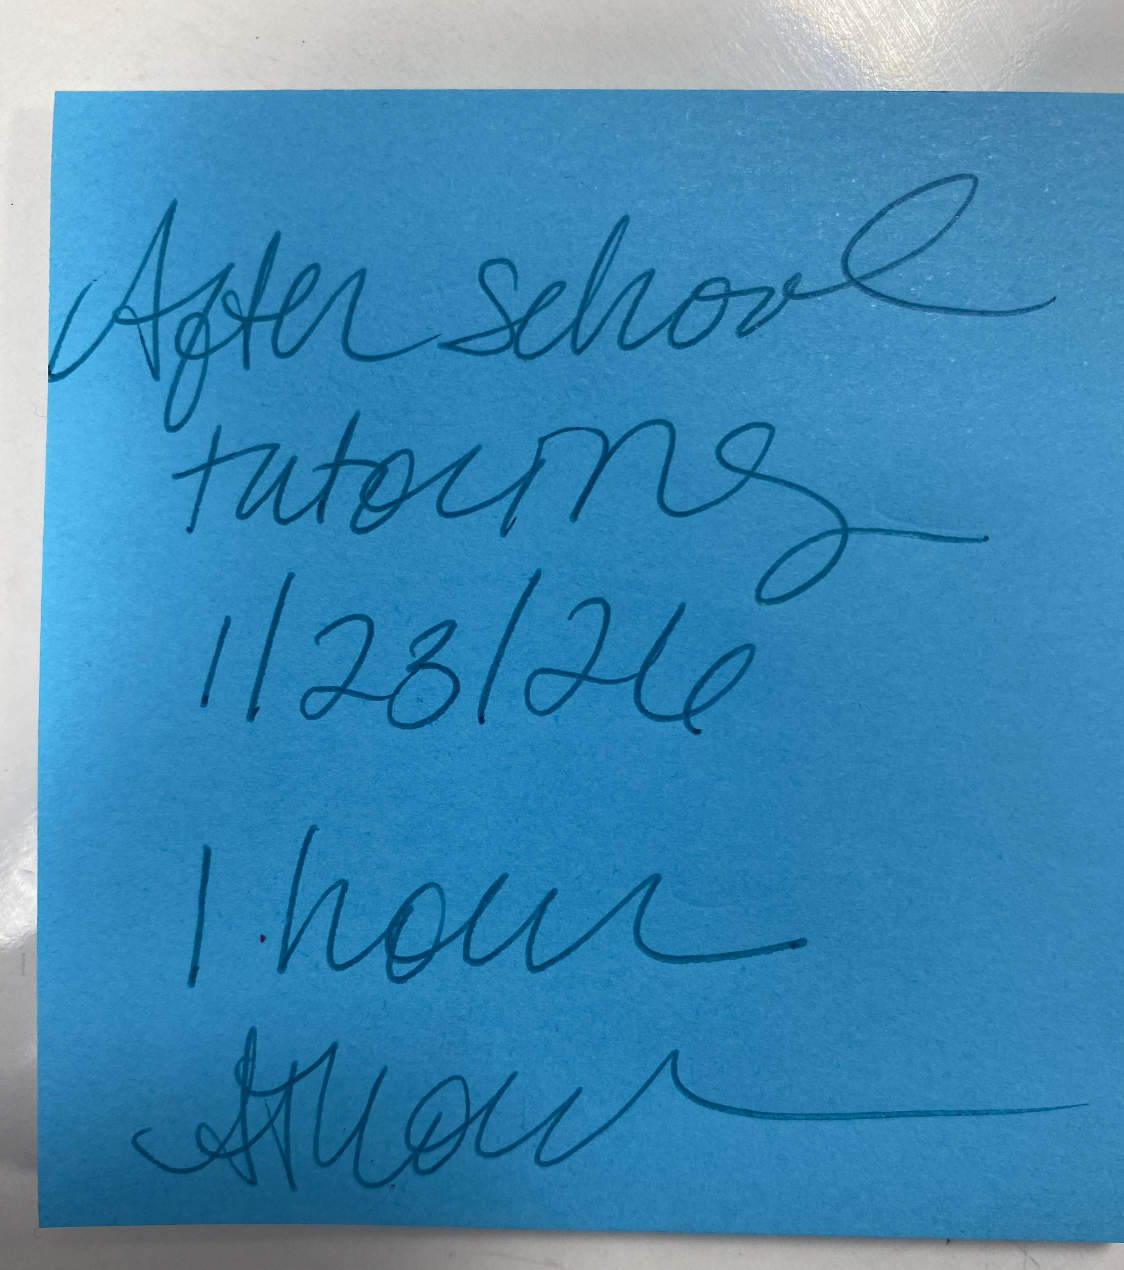 After school
tutoring
1/23/26
1 hour